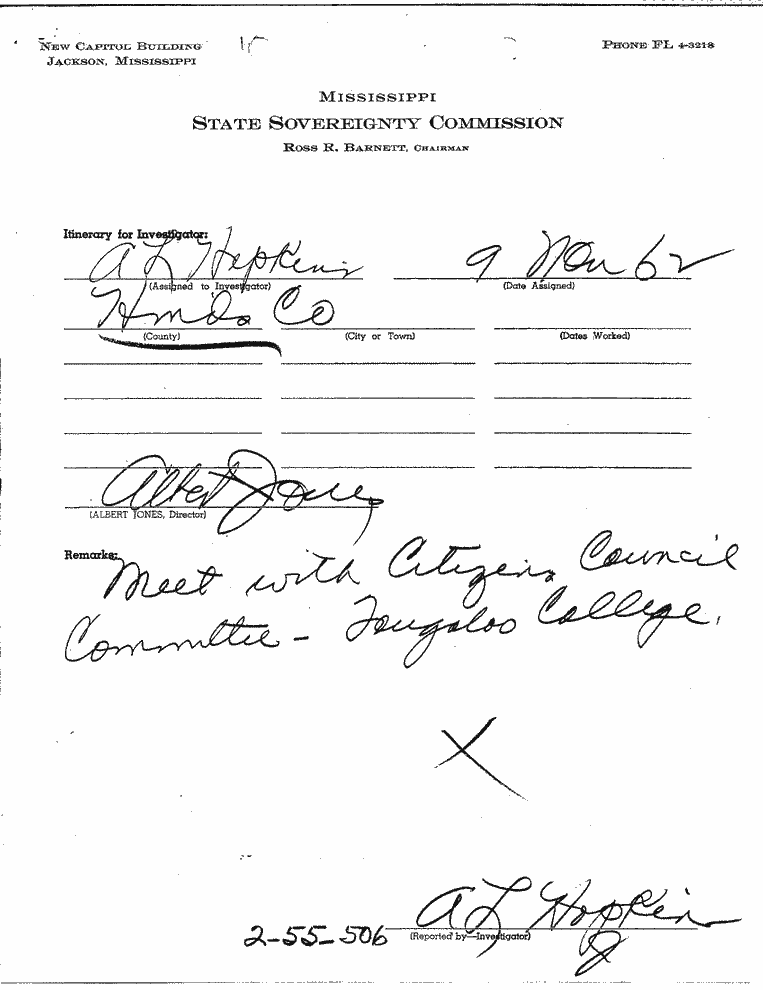 NEW CAPITOL BUILDING
JACKSON, MISSISSIPPI
PHONE FL 4-3218
MISSISSIPPI
STATE SOVEREIGNTY COMMISSION
ROSS R. BARNETT, CHAIRMAN
Itinerary for Investigator:
A L Hopkins 9 Nov 62
(Assigned to Investigator) (Date Assigned)
Hinds Co
(County) (City or Town) (Dates Worked)
Albert Jones
(ALBERT JONES, Director)
Remarks:
Meet with Citizens Council
Committee - Tougaloo College.
X
A L Hopkins
2-55-506 (Reported by—Investigator)